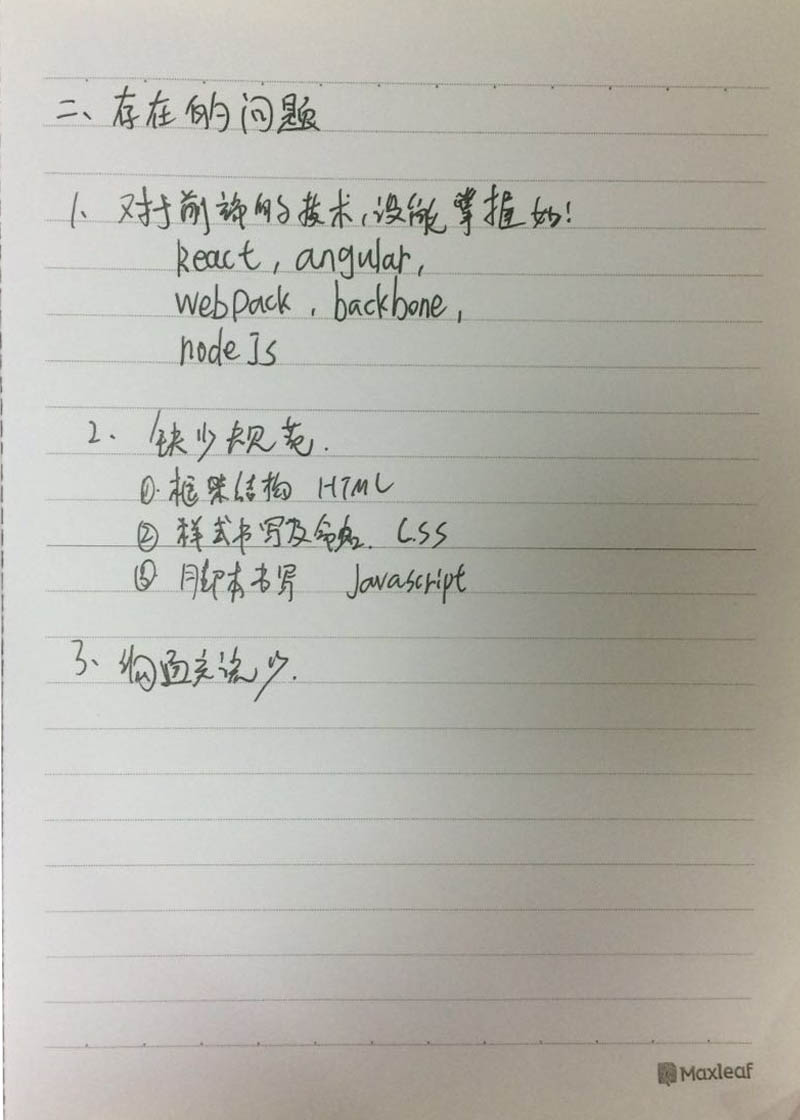 二、存在的问题
1、对于前端的技术,没能掌握好!
react, angular,
webpack, backbone,
node Js
2、缺少规范.
①.框架结构 HTML
②样式书写及命名. CSS
③脚本书写 Javascript
3、沟通交流少.
Maxleaf